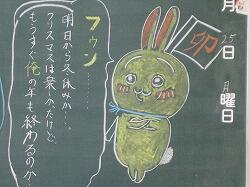 フウン……
明日から冬休みか……。
クリスマスは楽しみだけど、
もうすぐ俺の年も終わるのか…
卯
月
25日
月曜日